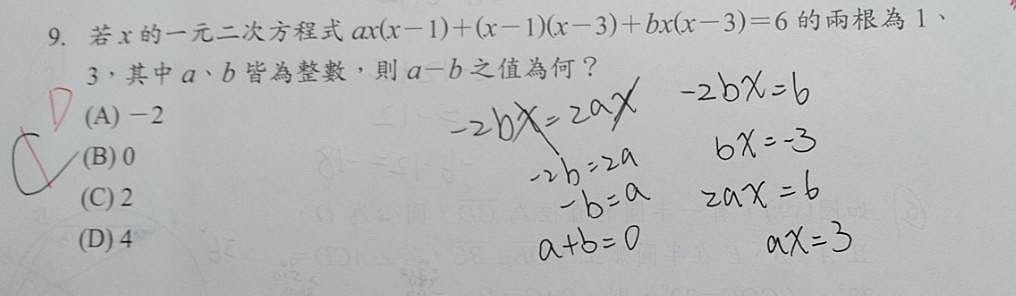 9. 若 x 的一元二次方程式 ax(x-1)+(x-1)(x-3)+bx(x-3)=6 的兩根為 1、
3,其中 a、b 皆為整數,則 a-b 之值為何?
D
(A) -2
C
(B) 0
(C) 2
(D) 4
-2bx=2ax
-2b=2a
-b=a
a+b=0
-2bx=6
bx=-3
2ax=6
ax=3